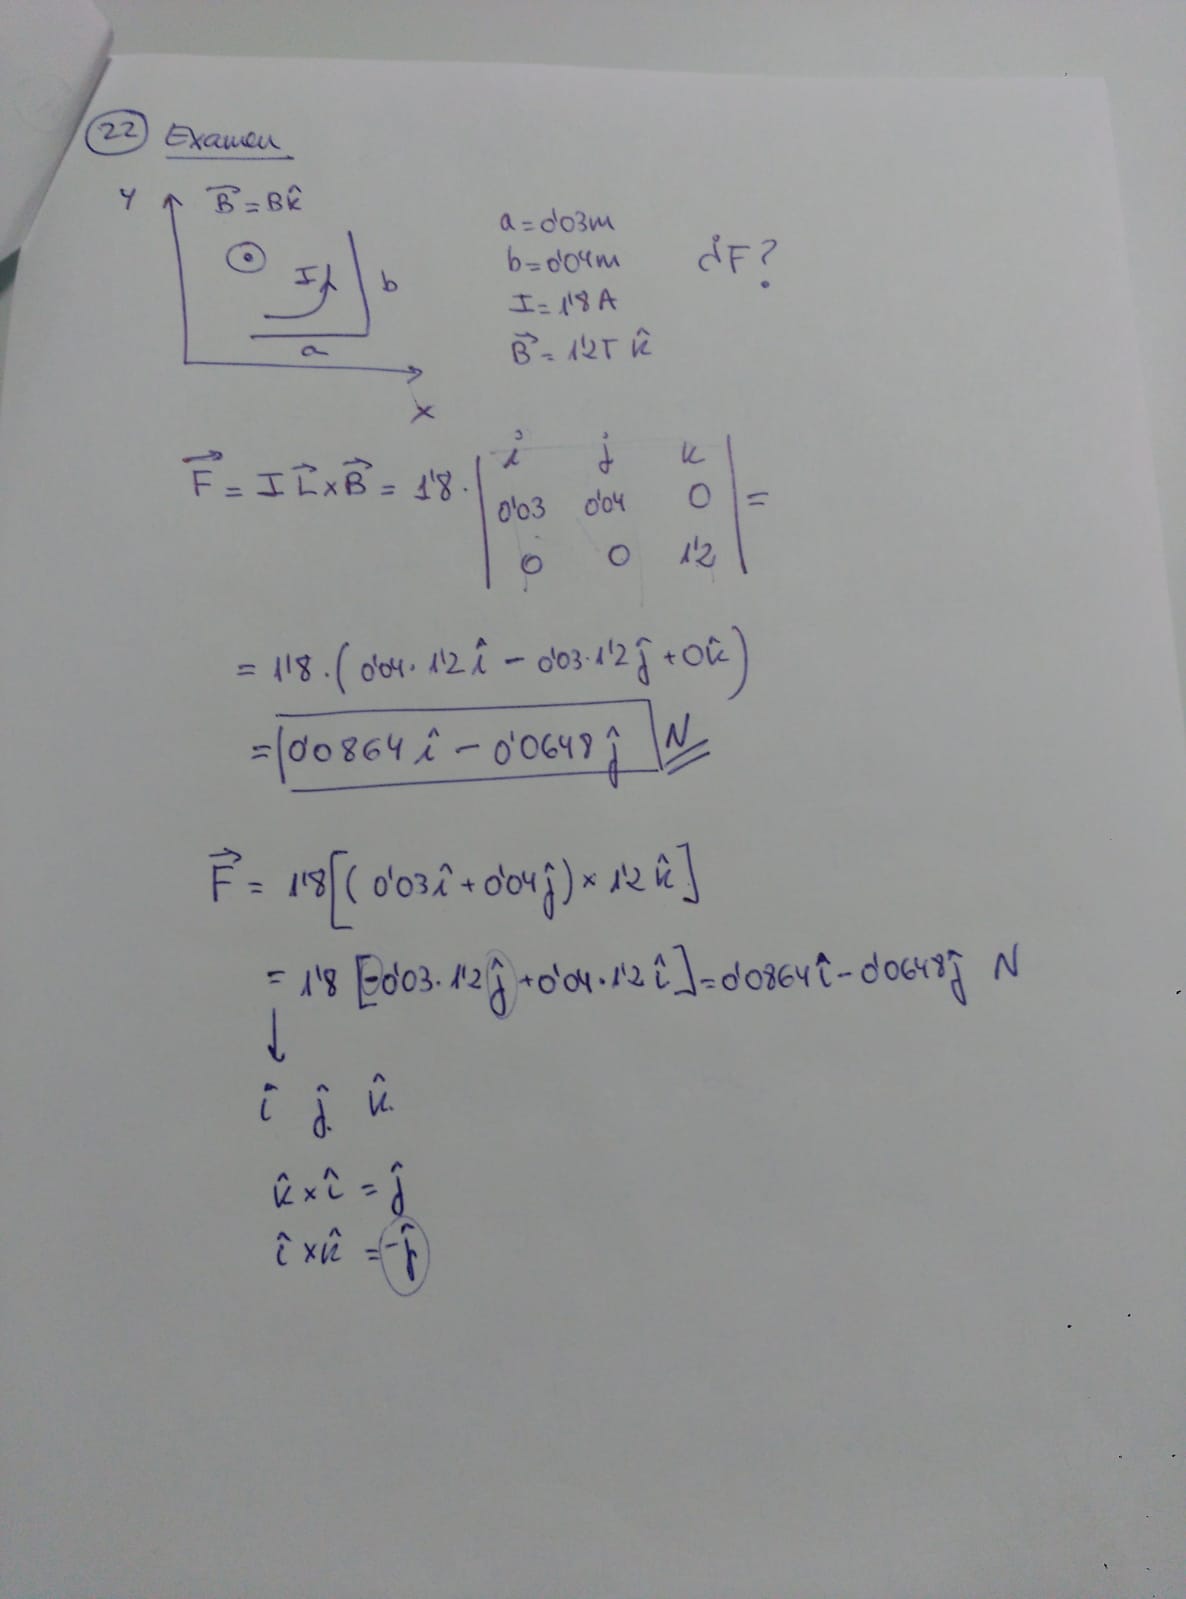 22 Examen
Y B⃗ = B k̂
I b
a
X
a = 0'03m
b = 0'04m ¿F?
I = 1'8 A
B⃗ = 1'2T k̂
F⃗ = I L⃗ x B⃗ = 1'8 · | i j k
0'03 0'04 0 | =
0 0 1'2
= 1'8 · ( 0'04 · 1'2 î - 0'03 · 1'2 ĵ + 0k̂ )
= 0'0864 î - 0'0648 ĵ N
F⃗ = 1'8 [ ( 0'03 î + 0'04 ĵ ) x 1'2 k̂ ]
= 1'8 [ -0'03 · 1'2 ĵ + 0'04 · 1'2 î ] = 0'0864 î - 0'0648 ĵ N
↓
î ĵ k̂
k̂ x î = ĵ
î x k̂ = -ĵ